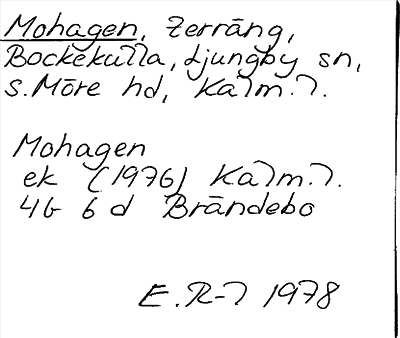 Mohagen, Terräng,
Bockekulla, Ljungby sn,
S. Möre hd, Kalm. l.
Mohagen
ek (1976) Kalm. l.
4G 6d Brändebo
E. R-l 1978